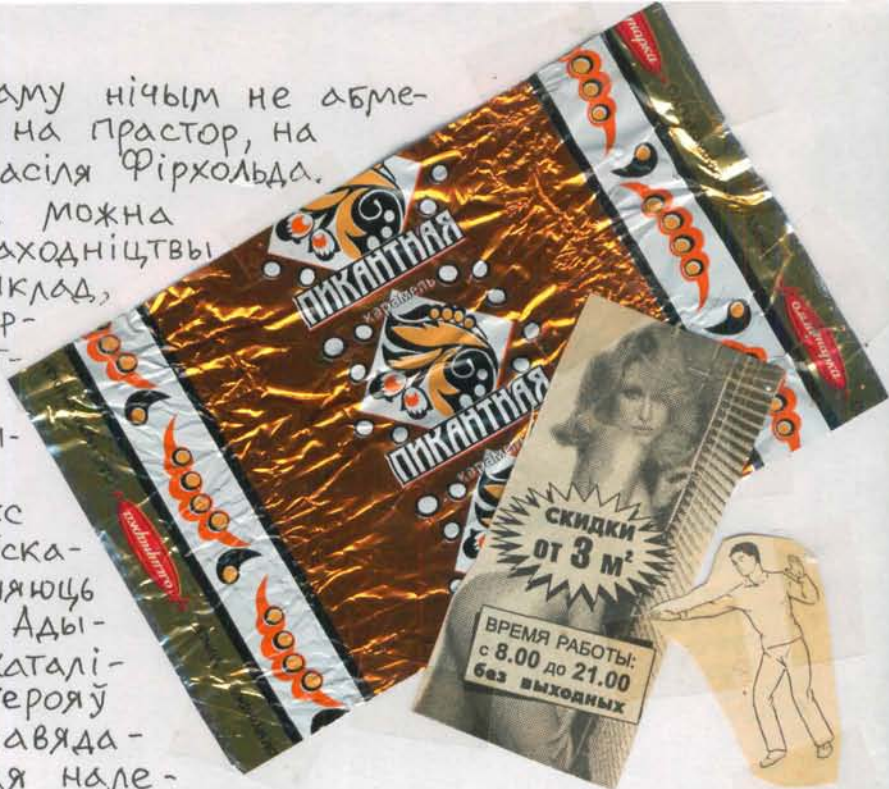 аму нічым не абме-
на прастор, на
асіля Фірхольда.
можна
аходніцтвы
клад,
р-
і-
кс
ска-
яюць
Ады-
каталі-
герояў
авяда-
я нале-
ПИКАНТНАЯ
карамель
ПИКАНТНАЯ
карамель
Спартак
СКИДКИ
ОТ 3 м²
ВРЕМЯ РАБОТЫ:
с 8.00 до 21.00
без выходных